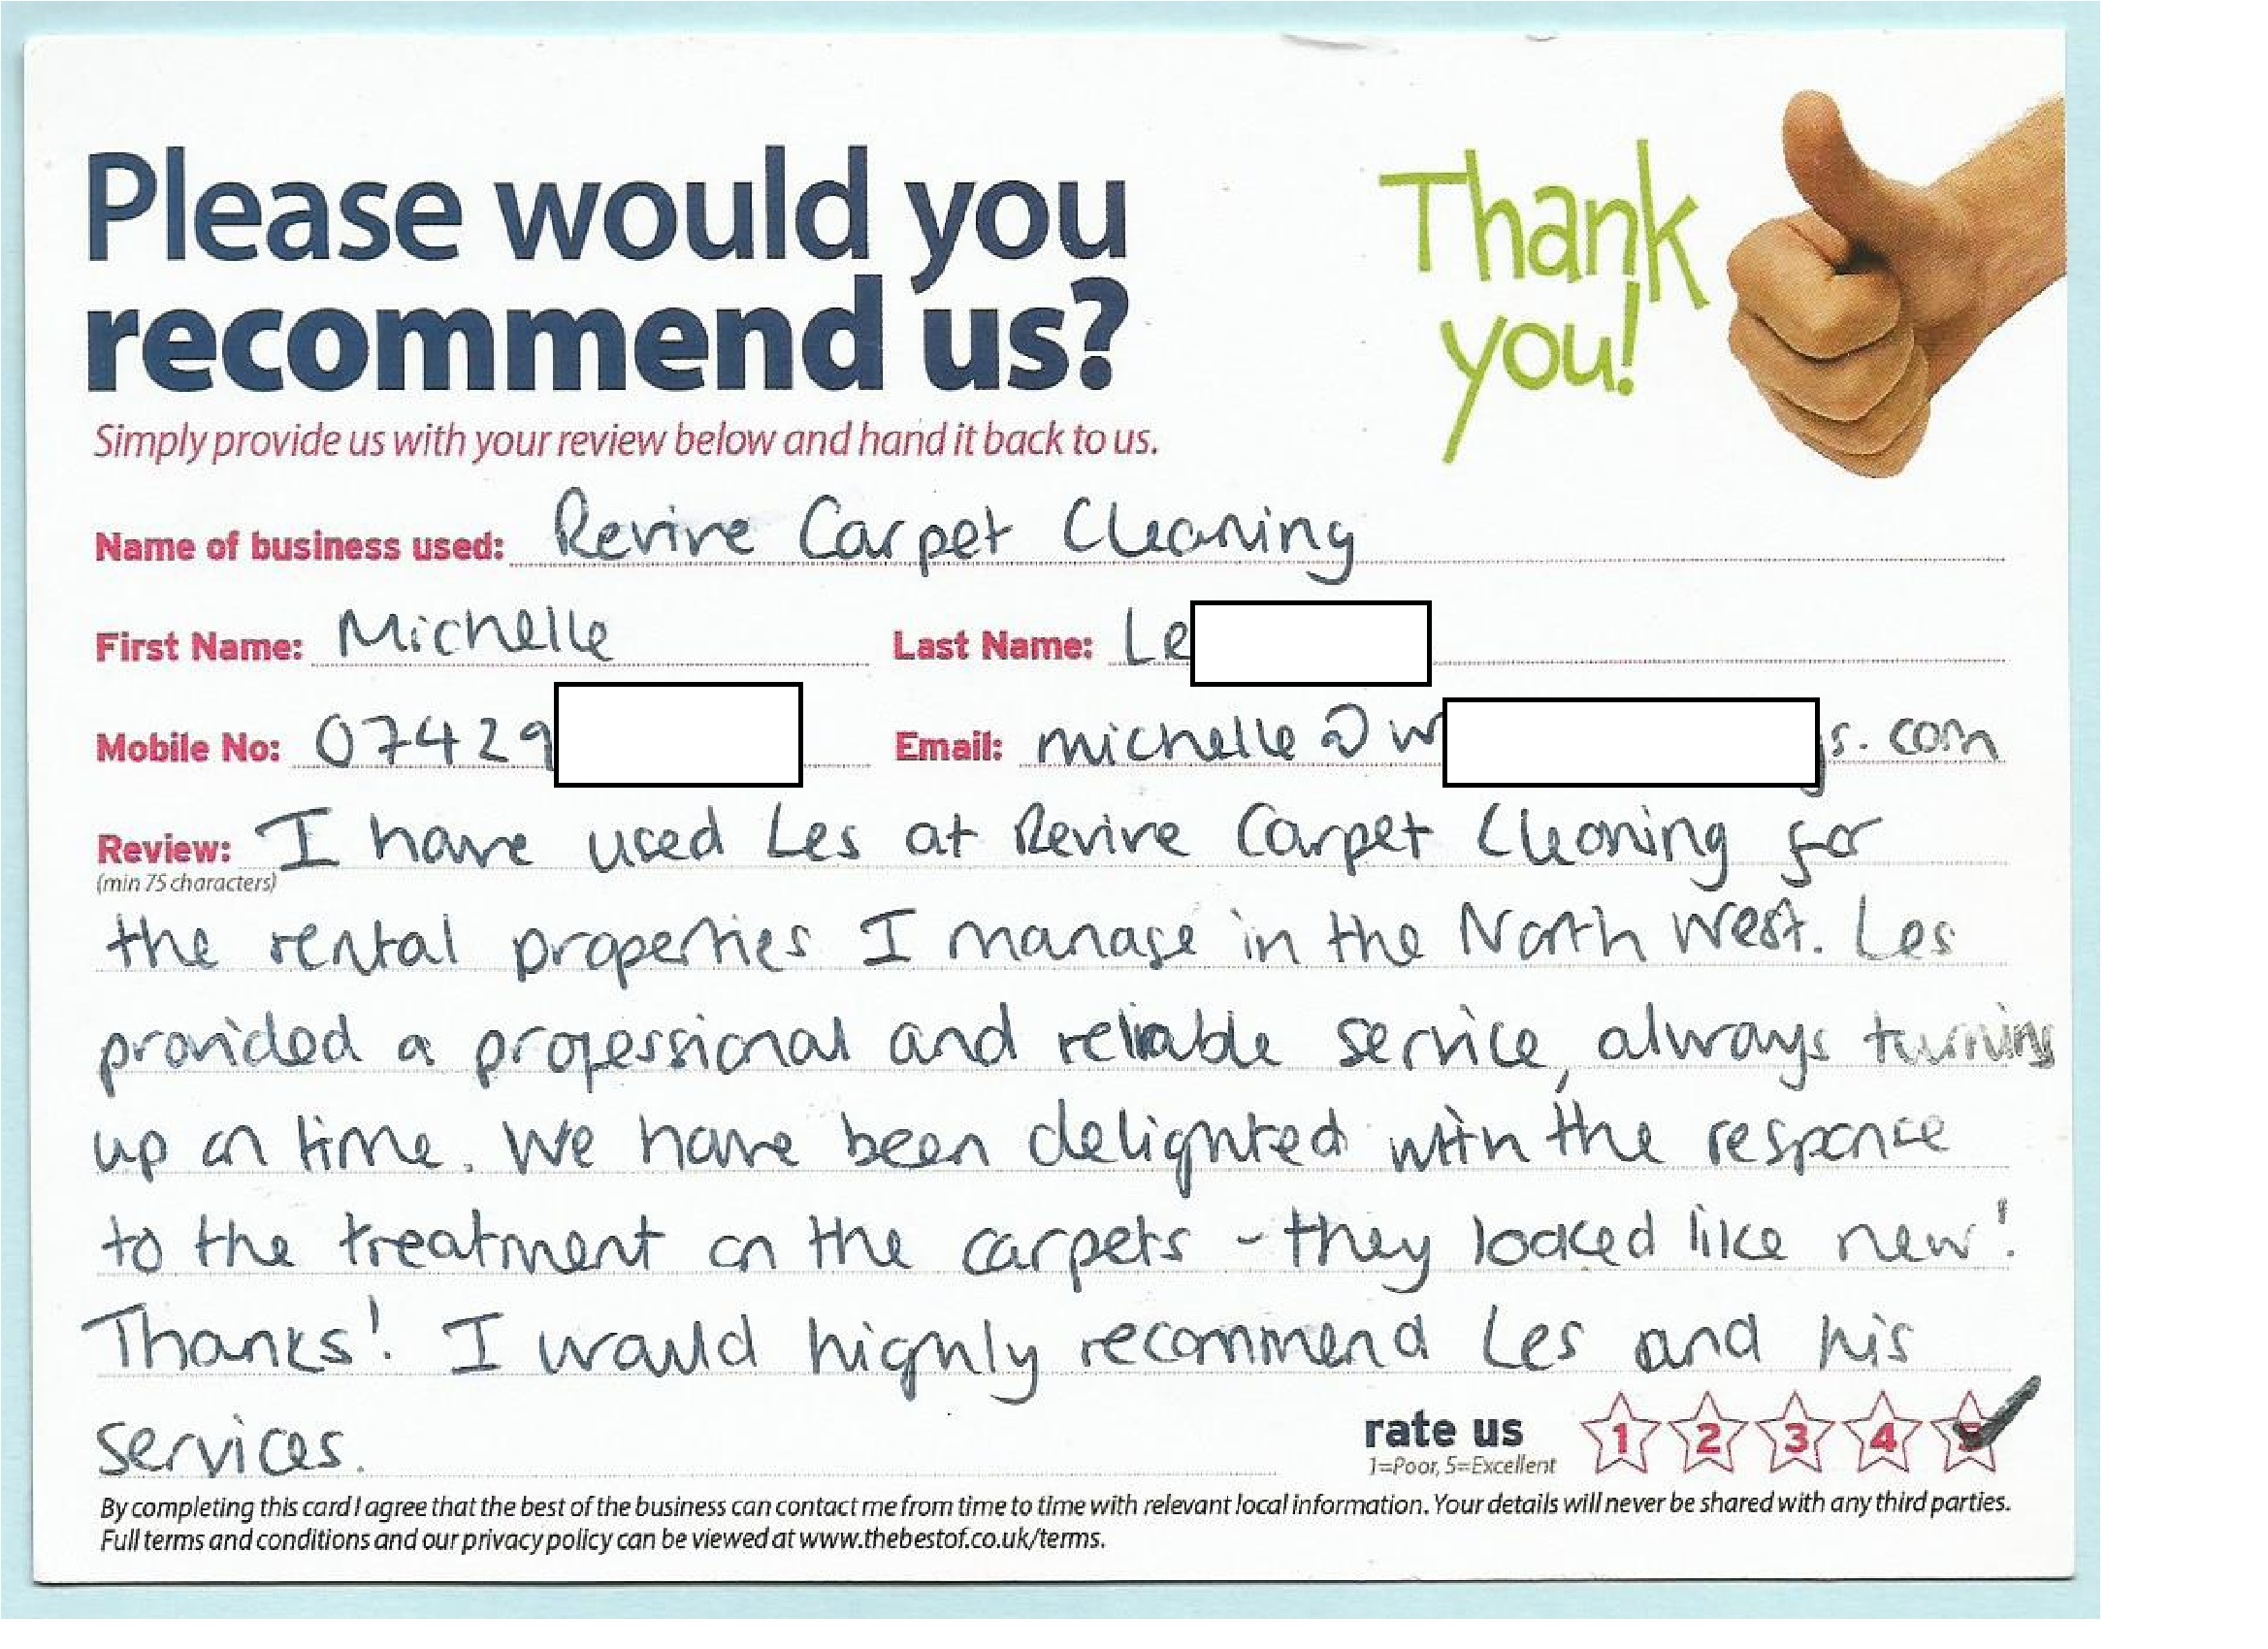 Please would you
recommend us?
Thank
you!
Simply provide us with your review below and hand it back to us.
Name of business used: Revive Carpet Cleaning
First Name: Michelle Last Name: Le
Mobile No: 07429 Email: michelle@w s.com
Review: I have used Les at Revive Carpet Cleaning for
(min 75 characters)
the rental properties I manage in the North West. Les
provided a professional and reliable service, always turning
up on time. We have been delighted with the response
to the treatment on the carpets - they looked like new!
Thanks! I would highly recommend Les and his
services.
rate us 1 2 3 4 5
1=Poor, 5=Excellent
By completing this card I agree that the best of the business can contact me from time to time with relevant local information. Your details will never be shared with any third parties.
Full terms and conditions and our privacy policy can be viewed at www.thebestof.co.uk/terms.